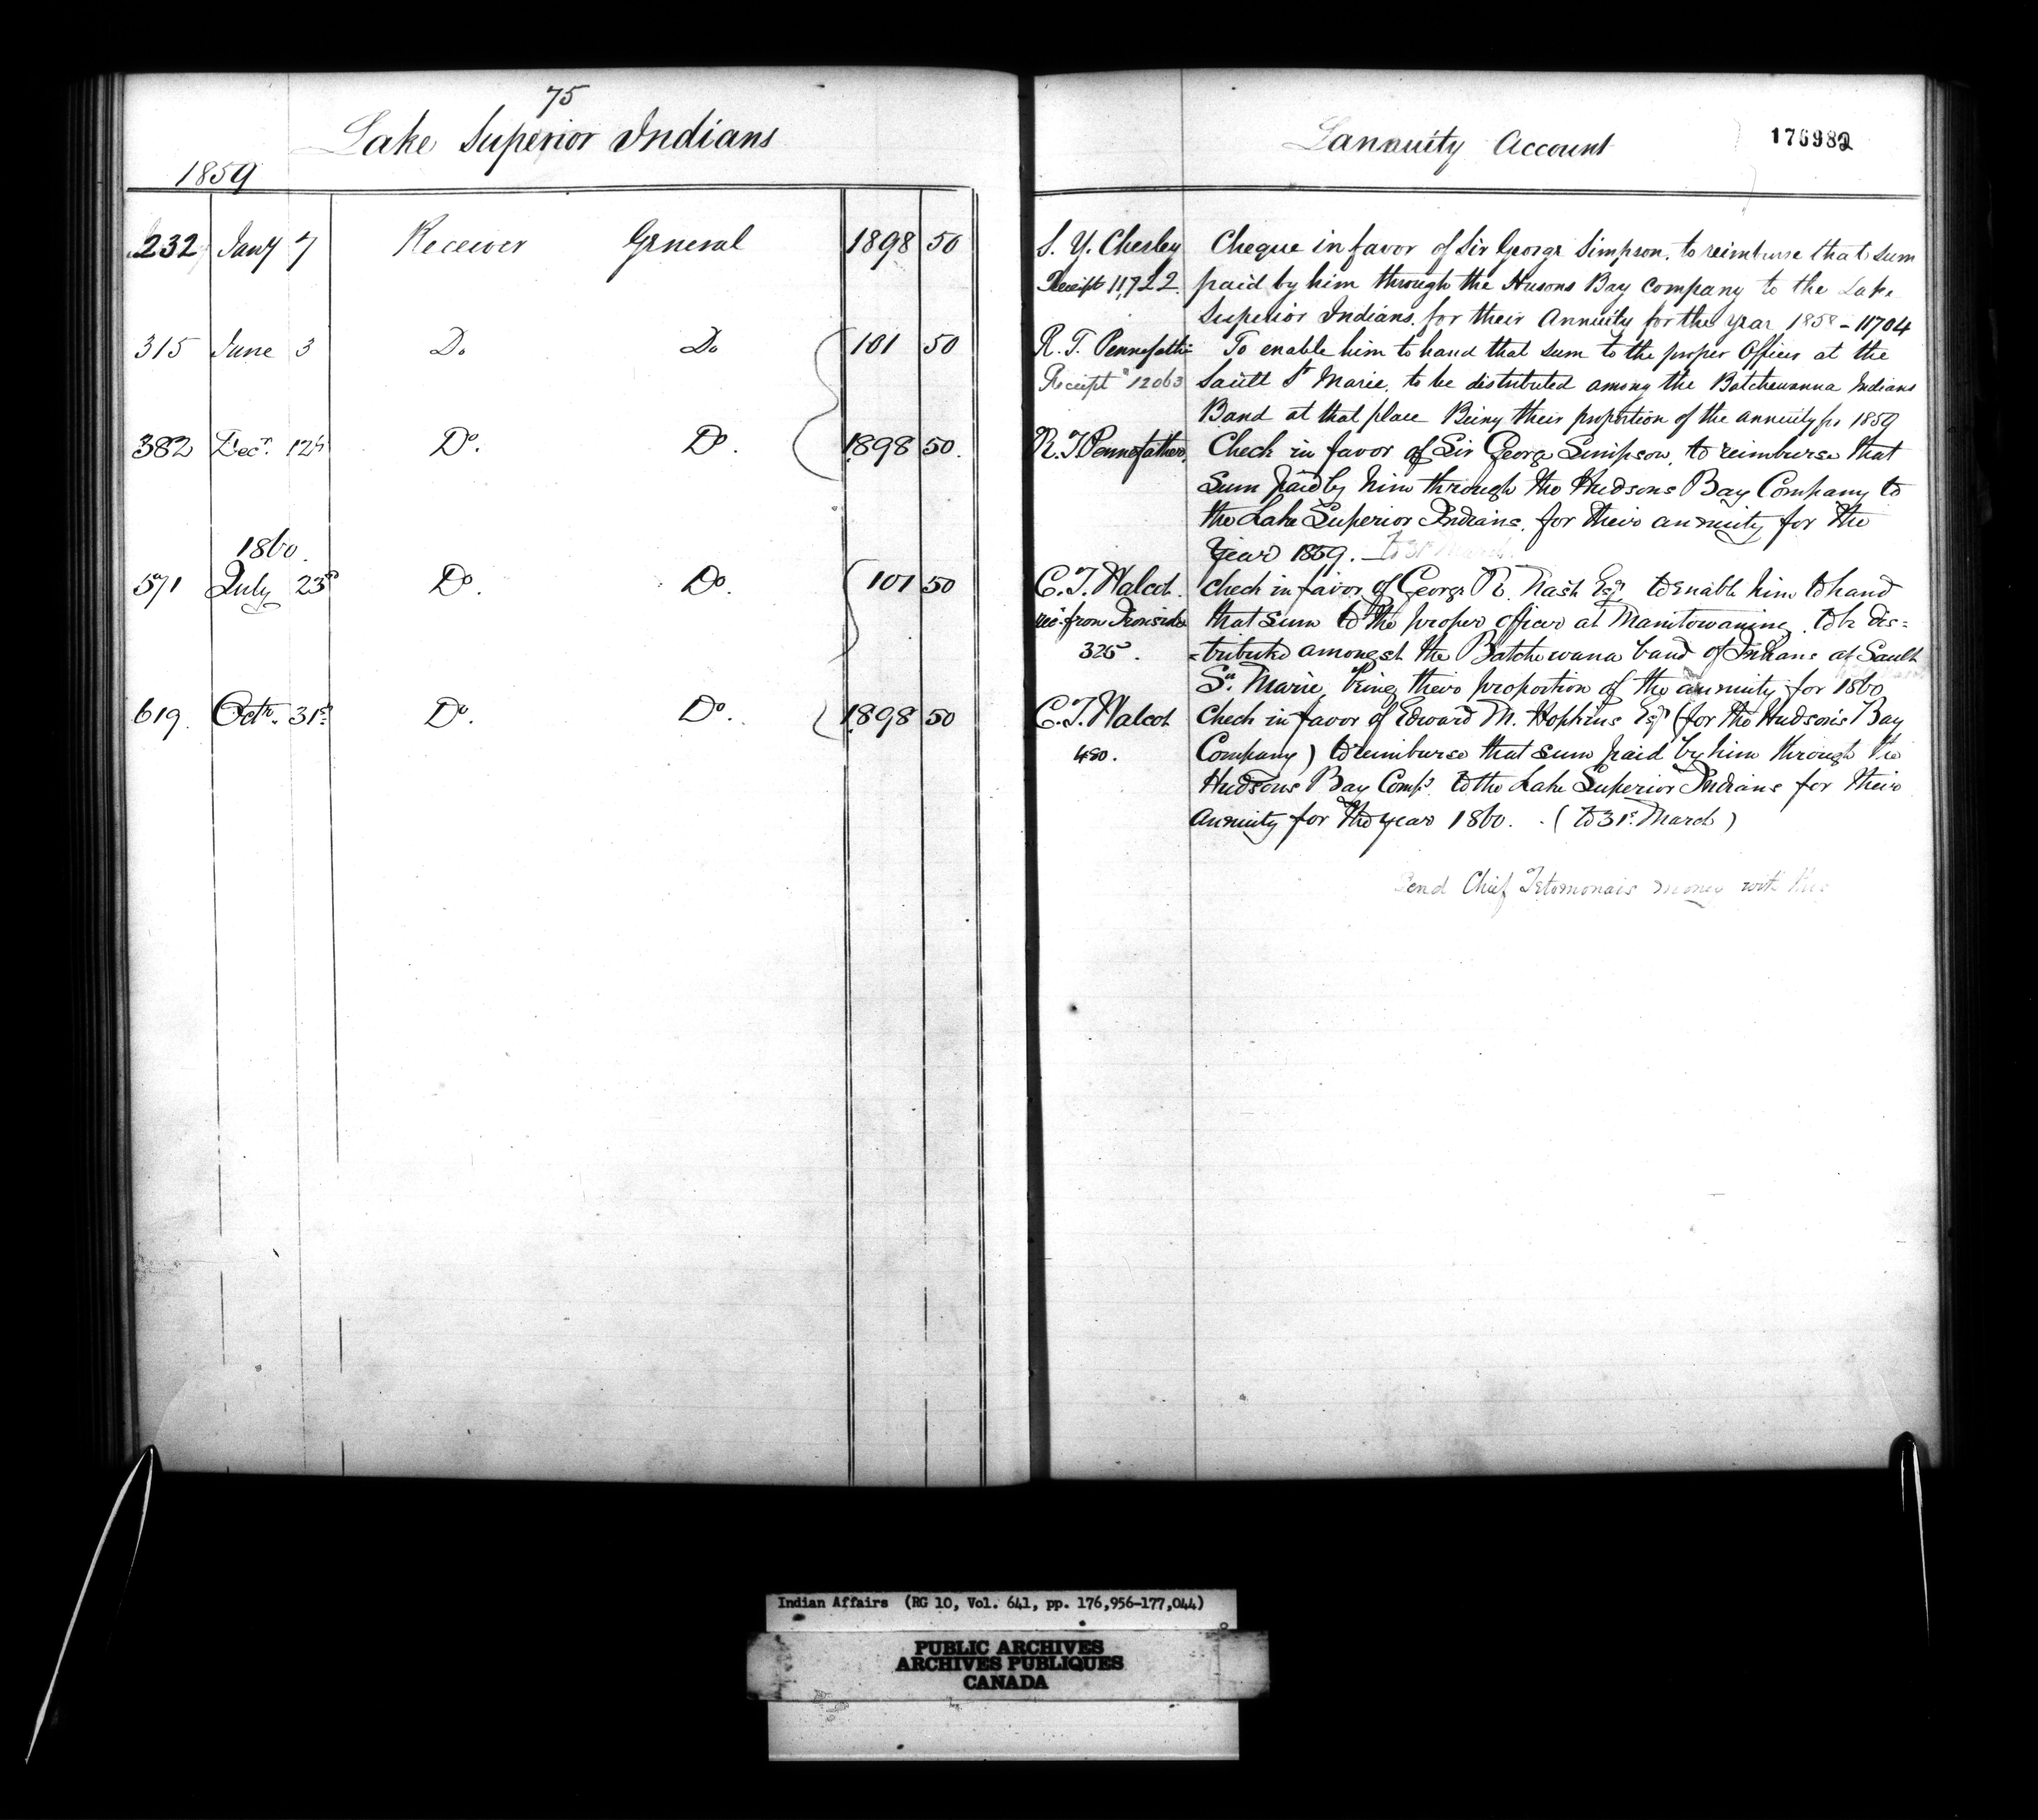 75
Lake Superior Indians
1859
232 Jany 7 Receiver General 1898 50
315 June 3 Do Do 101 50
382 Decr. 12th Do. Do. 1898 50.
1860.
571 July 23rd Do. Do. 101 50
619. Octr. 31st. Do. Do. 1898 50
Lannuity Account 176982
S. Y. Chesley Cheque in favor of Sir George Simpson, to reimburse that sum
Receipt 11,722. paid by him through the Husons Bay Company to the Lake
Superior Indians, for their Annuity for the year 1858 - 11704
R. T. Pennefather To enable him to hand that sum to the proper Officer at the
Receipt 12063 Sault St Marie, to be distributed among the Batchewanna Indians
Band at that place Being their proportion of the annuity for 1859
R. T. Pennefather, Check in favor of Sir George Simpson, to reimburse that
Sum paid by him through the Hudsons Bay Company to
the Lake Superior Indians, for their annuity for the
Year 1859. - to 31st March
C. T. Walcot. Check in favor of George R. Nash Esqr. to enable him to hand
rec. from Ironside that sum to the proper officer at Manitowaning, to be dis=
325. =tributed amongst the Batchewana band of Indians at Sault
Ste. Marie, being their proportion of the annuity for 1860
C. T. Walcot Check in favor of Edward M. Hopkins Esqr (for the Hudson's Bay
480. Company) to reimburse that sum paid by him through the
Hudsons Bay Compy. to the Lake Superior Indians for their
Annuity for the year 1860. - (to 31st. March)
Send Chief money with this
Indian Affairs (RG 10, Vol. 641, pp. 176,956-177,044)
PUBLIC ARCHIVES
ARCHIVES PUBLIQUES
CANADA